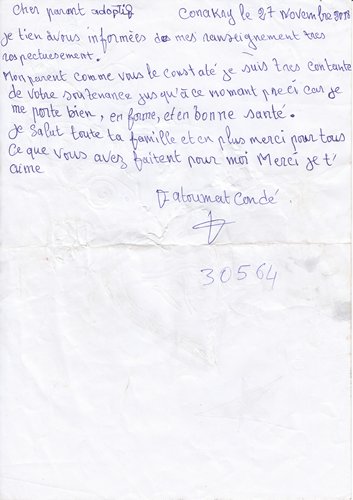 Cher parent adoptif Conakry le 27 Novembre 2008
je tien àvous informées de mes renseignement tres
respectuesement.
Mon parent comme vous le constaté je suis tres contante
de votre soutenance jusqu'à ce momant preci car je
me porte bien, en forme, et en bonne santé.
Je Salut toute ta famille et en plus merci pour tous
Ce que vous avez faitent pour moi Merci je t'
aime
Fatoumat Condé.
30564